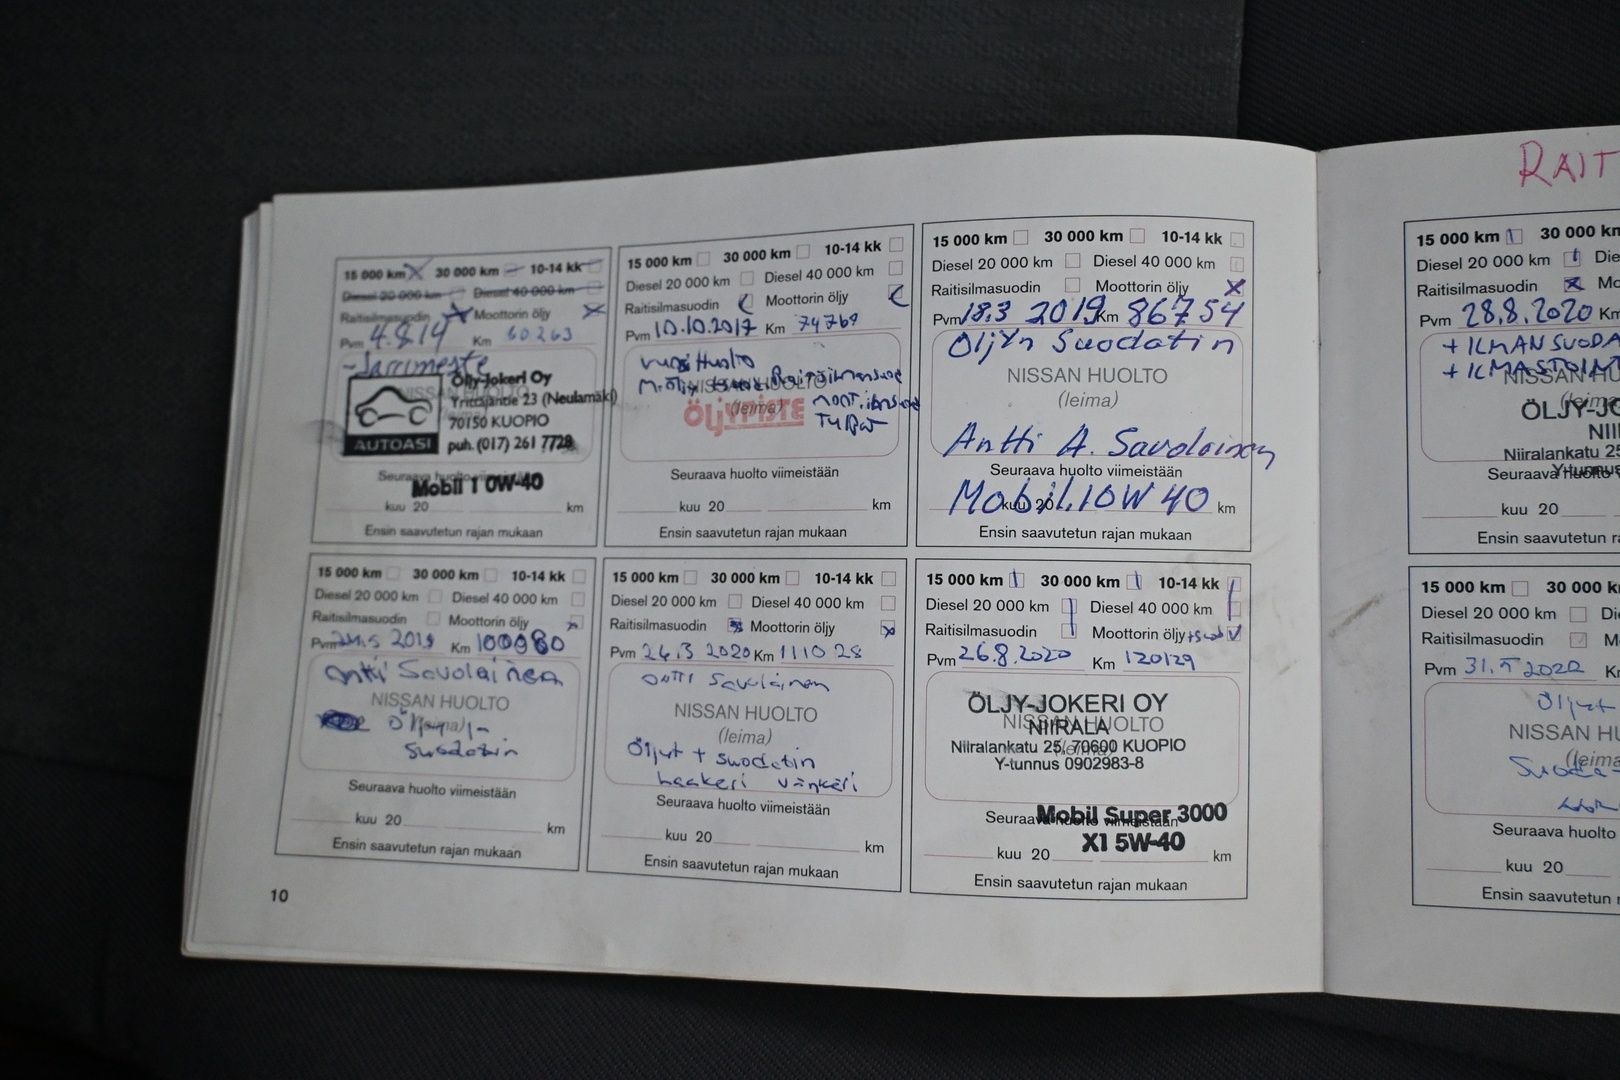 15 000 km 30 000 km 10-14 kk
Diesel 20 000 km Diesel 40 000 km
Raitisilmasuodin Moottorin öljy
Pvm 4.8.14 Km 60263
- Jarrineste
NISSAN HUOLTO
(leima)
Öljy-Jokeri Oy
Yrittäjäntie 23 (Neulamäki)
70150 KUOPIO
AUTOASI puh. (017) 261 7728
Seuraava huolto viimeistään
Mobil 1 0W-40
kuu 20 km
Ensin saavutetun rajan mukaan
15 000 km 30 000 km 10-14 kk
Diesel 20 000 km Diesel 40 000 km
Raitisilmasuodin Moottorin öljy
Pvm 10.10.2017 Km 74769
vuosi Huolto
M.öljy
NISSAN HUOLTO
(leima)
ÖLJYPISTE
Seuraava huolto viimeistään
kuu 20 km
Ensin saavutetun rajan mukaan
15 000 km 30 000 km 10-14 kk
Diesel 20 000 km Diesel 40 000 km
Raitisilmasuodin Moottorin öljy
Pvm 18.3 2019 Km 86754
Öljyn Suodatin
NISSAN HUOLTO
(leima)
Antti A. Savolainen
Seuraava huolto viimeistään
Mobil.10W40
kuu 20 km
Ensin saavutetun rajan mukaan
15 000 km 30 000 km 10-14 kk
Diesel 20 000 km Diesel 40 000 km
Raitisilmasuodin Moottorin öljy
Pvm 2019 Km 100080
Antti Savolainen
NISSAN HUOLTO
(leima)
Suodatin
Seuraava huolto viimeistään
kuu 20 km
Ensin saavutetun rajan mukaan
15 000 km 30 000 km 10-14 kk
Diesel 20 000 km Diesel 40 000 km
Raitisilmasuodin Moottorin öljy
Pvm 24.3 2020 Km 111028
Antti Savolainen
NISSAN HUOLTO
(leima)
Öljyt + suodatin
Seuraava huolto viimeistään
kuu 20 km
Ensin saavutetun rajan mukaan
15 000 km 30 000 km 10-14 kk
Diesel 20 000 km Diesel 40 000 km
Raitisilmasuodin Moottorin öljy +suod
Pvm 26.8.2020 Km 120129
ÖLJY-JOKERI OY
NISSAN HUOLTO
NIIRALA
(leima)
Niiralankatu 25, 70600 KUOPIO
Y-tunnus 0902983-8
Seuraava huolto viimeistään
Mobil Super 3000
X1 5W-40
kuu 20 km
Ensin saavutetun rajan mukaan
10
RAIT
15 000 km 30 000 km
Diesel 20 000 km Die
Raitisilmasuodin Mo
Pvm 28.8.2020 Km
+ ILMANSUODA
+ ILMASTOINT
NISSAN HU
(leima
ÖLJY-JO
NII
Niiralankatu 25
Y-tunnus
Seuraava huolto v
kuu 20
Ensin saavutetun ra
15 000 km 30 000 k
Diesel 20 000 km Dies
Raitisilmasuodin M
Pvm 2022 K
Öljyt
NISSAN HU
(leima
Suoda
Seuraava huolto
kuu 20
Ensin saavutetun r